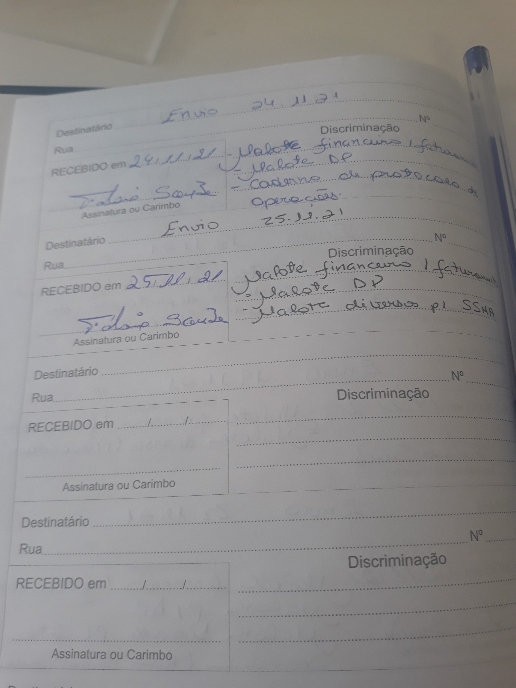 Destinatário Envio 24.11.21
Rua Nº
Discriminação
RECEBIDO em 24/11/21 - Malote financeiro / faturamento
- Malote DP
- Caderno de protocolo de
operações.
Assinatura ou Carimbo
Destinatário Envio 25.11.21
Rua Nº
Discriminação
RECEBIDO em 25/11/21 - Malote financeiro / faturamento
- Malote DP
- Malote diversos p/ SSMA
Assinatura ou Carimbo
Destinatário
Rua Nº
Discriminação
RECEBIDO em / /
Assinatura ou Carimbo
Destinatário
Rua Nº
Discriminação
RECEBIDO em / /
Assinatura ou Carimbo